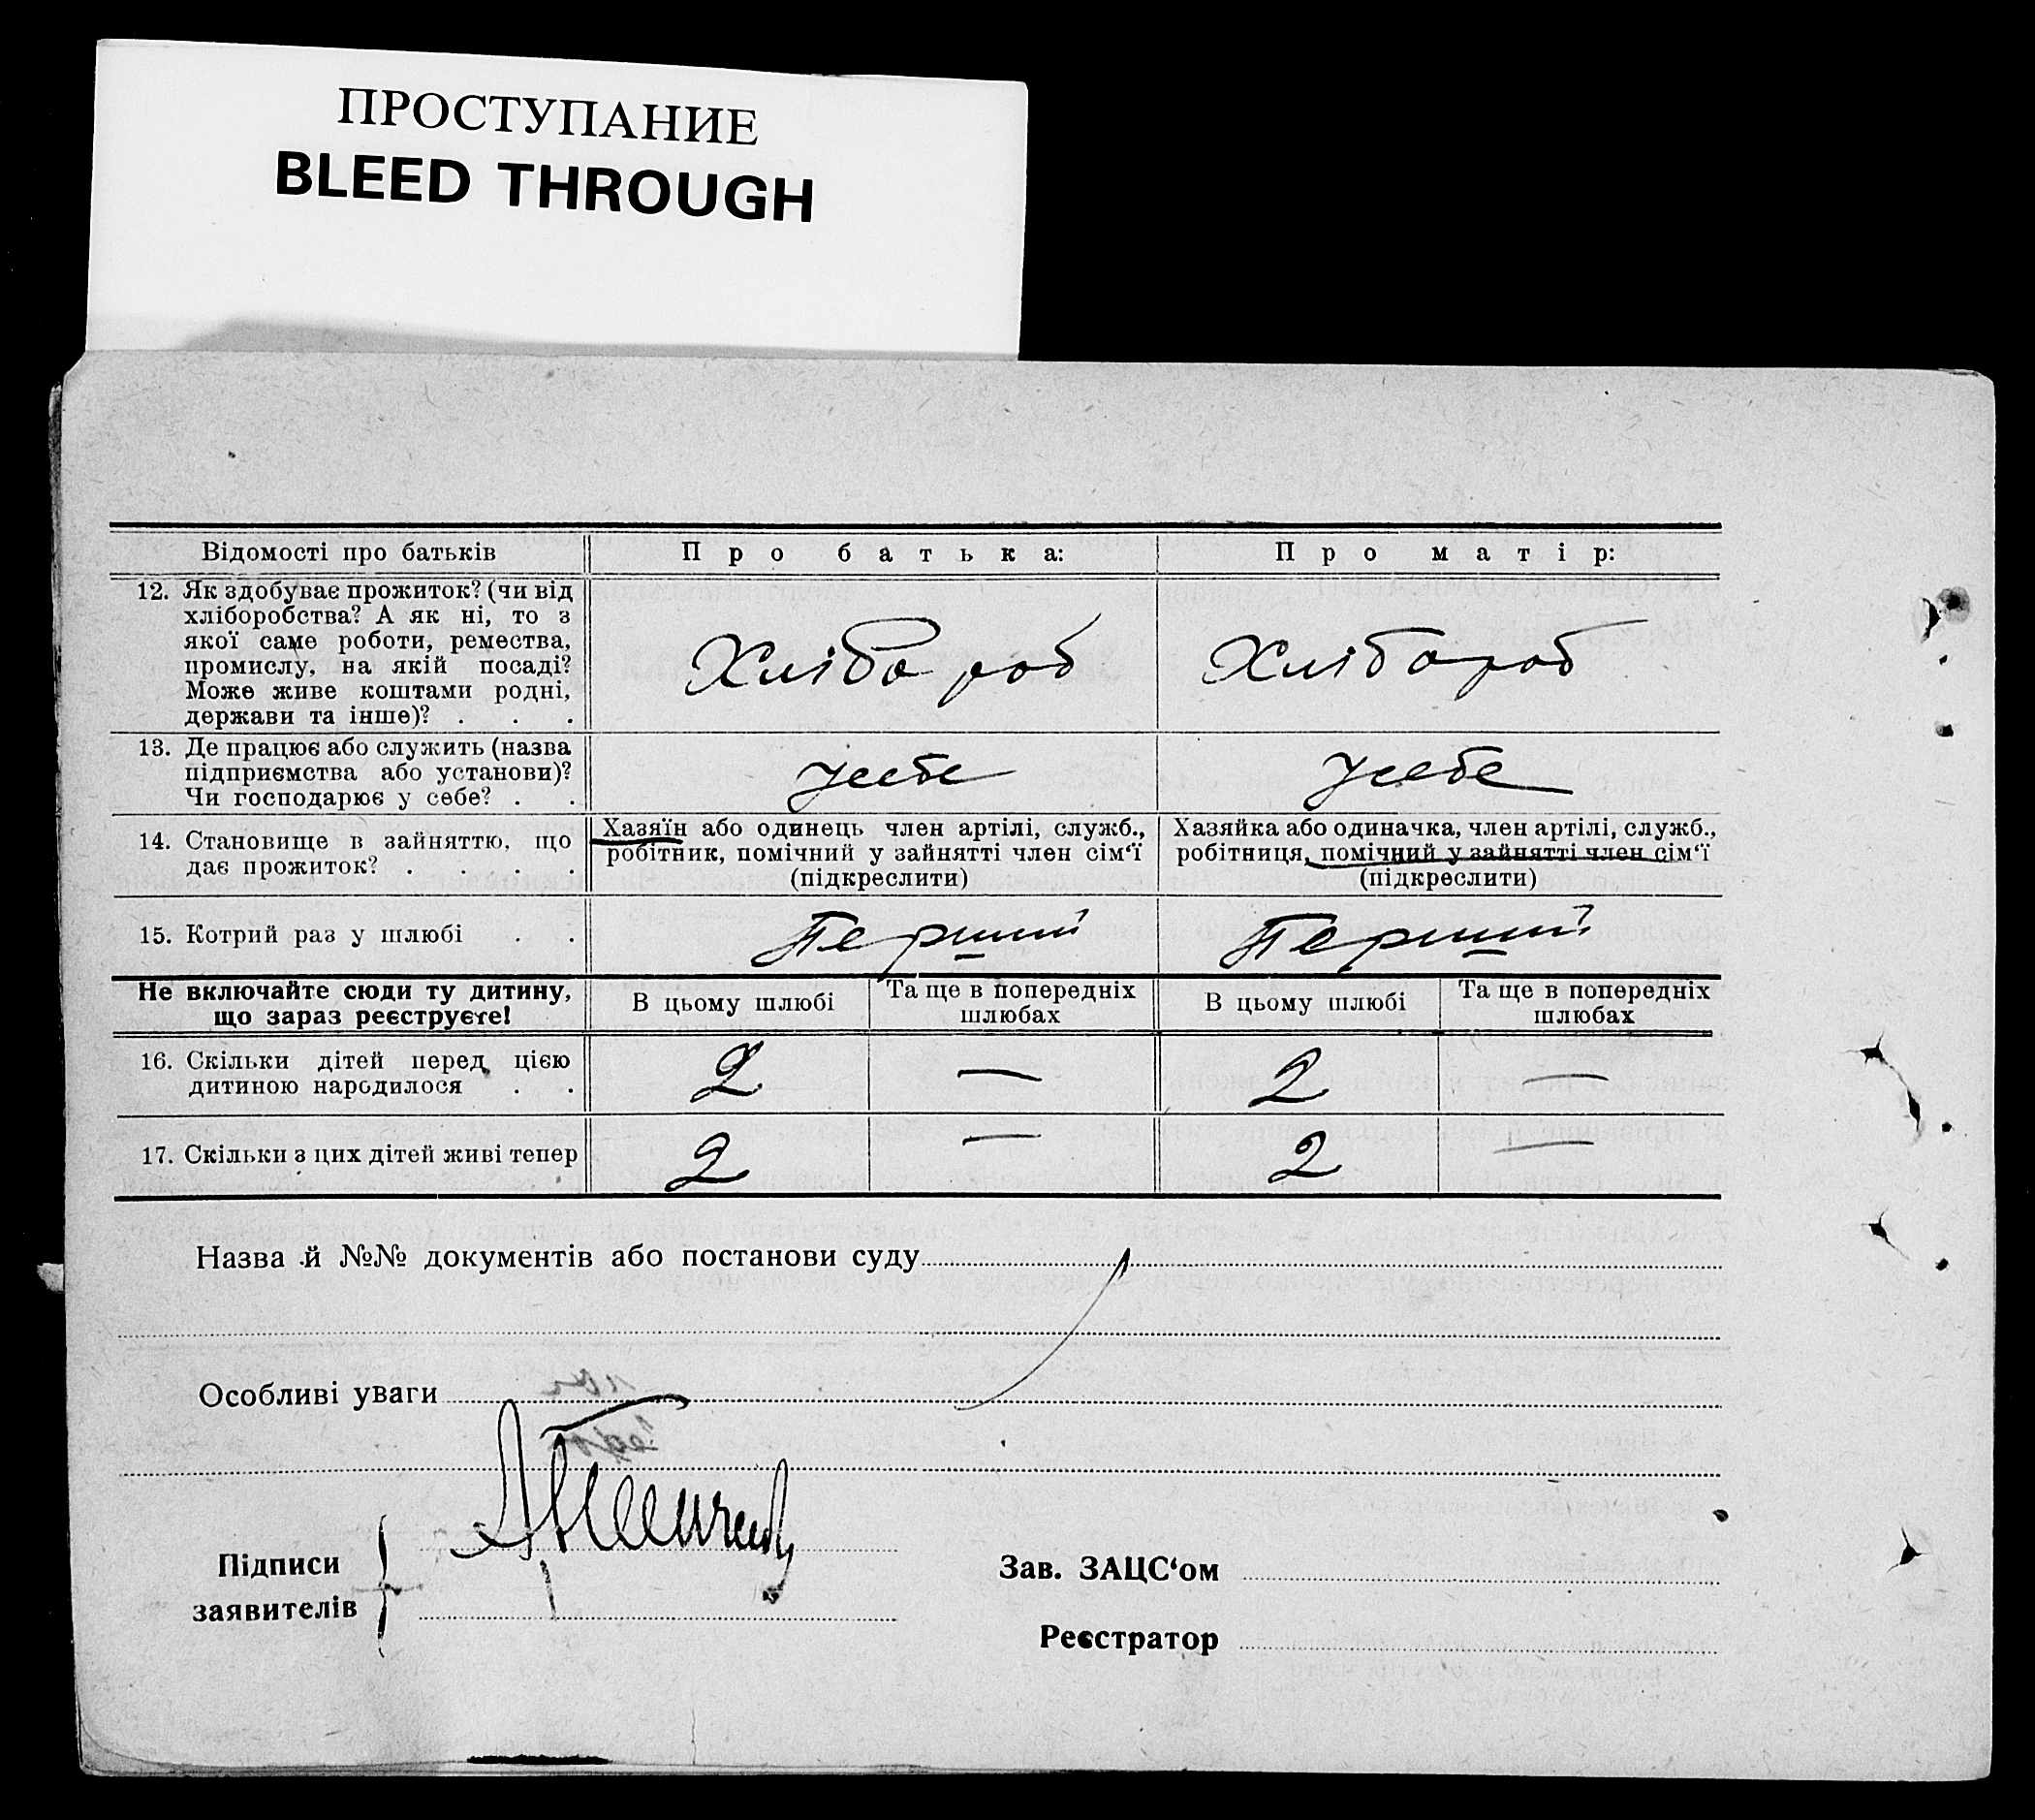 ПРОСТУПАНИЕ
BLEED THROUGH
Відомості про батьків
Про батька:
Про матір:
12. Як здобуває прожиток? (чи від
хліборобства? А як ні, то з
якої саме роботи, ремества,
промислу, на якій посаді?
Може живе коштами родні,
держави та інше)? . . .
Хлібороб
Хлібороб
13. Де працює або служить (назва
підприємства або установи)?
Чи господарює у себе? . .
У себе
У себе
14. Становище в зайняттю, що
дає прожиток? . . . .
Хазяїн або одинець член артілі, служб.,
робітник, помічний у зайнятті член сім‘ї
(підкреслити)
Хазяйка або одиначка, член артілі, служб.,
робітниця, помічний у зайнятті член сім‘ї
(підкреслити)
15. Котрий раз у шлюбі . .
Перший
Перший
Не включайте сюди ту дитину,
що зараз реєструєте!
В цьому шлюбі
Та ще в попередніх
шлюбах
В цьому шлюбі
Та ще в попередніх
шлюбах
16. Скільки дітей перед цією
дитиною народилося . .
2
—
2
—
17. Скільки з цих дітей живі тепер
2
—
2
—
Назва й №№ документів або постанови суду
Особливі уваги
Підписи
заявителів
Зав. ЗАЦС‘ом
Реєстратор